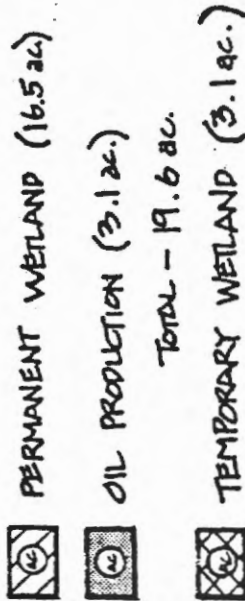 AC PERMANENT WETLAND (16.5 ac.)
AC OIL PRODUCTION (3.1 ac.)
TOTAL - 19.6 ac.
AC TEMPORARY WETLAND (3.1 ac.)